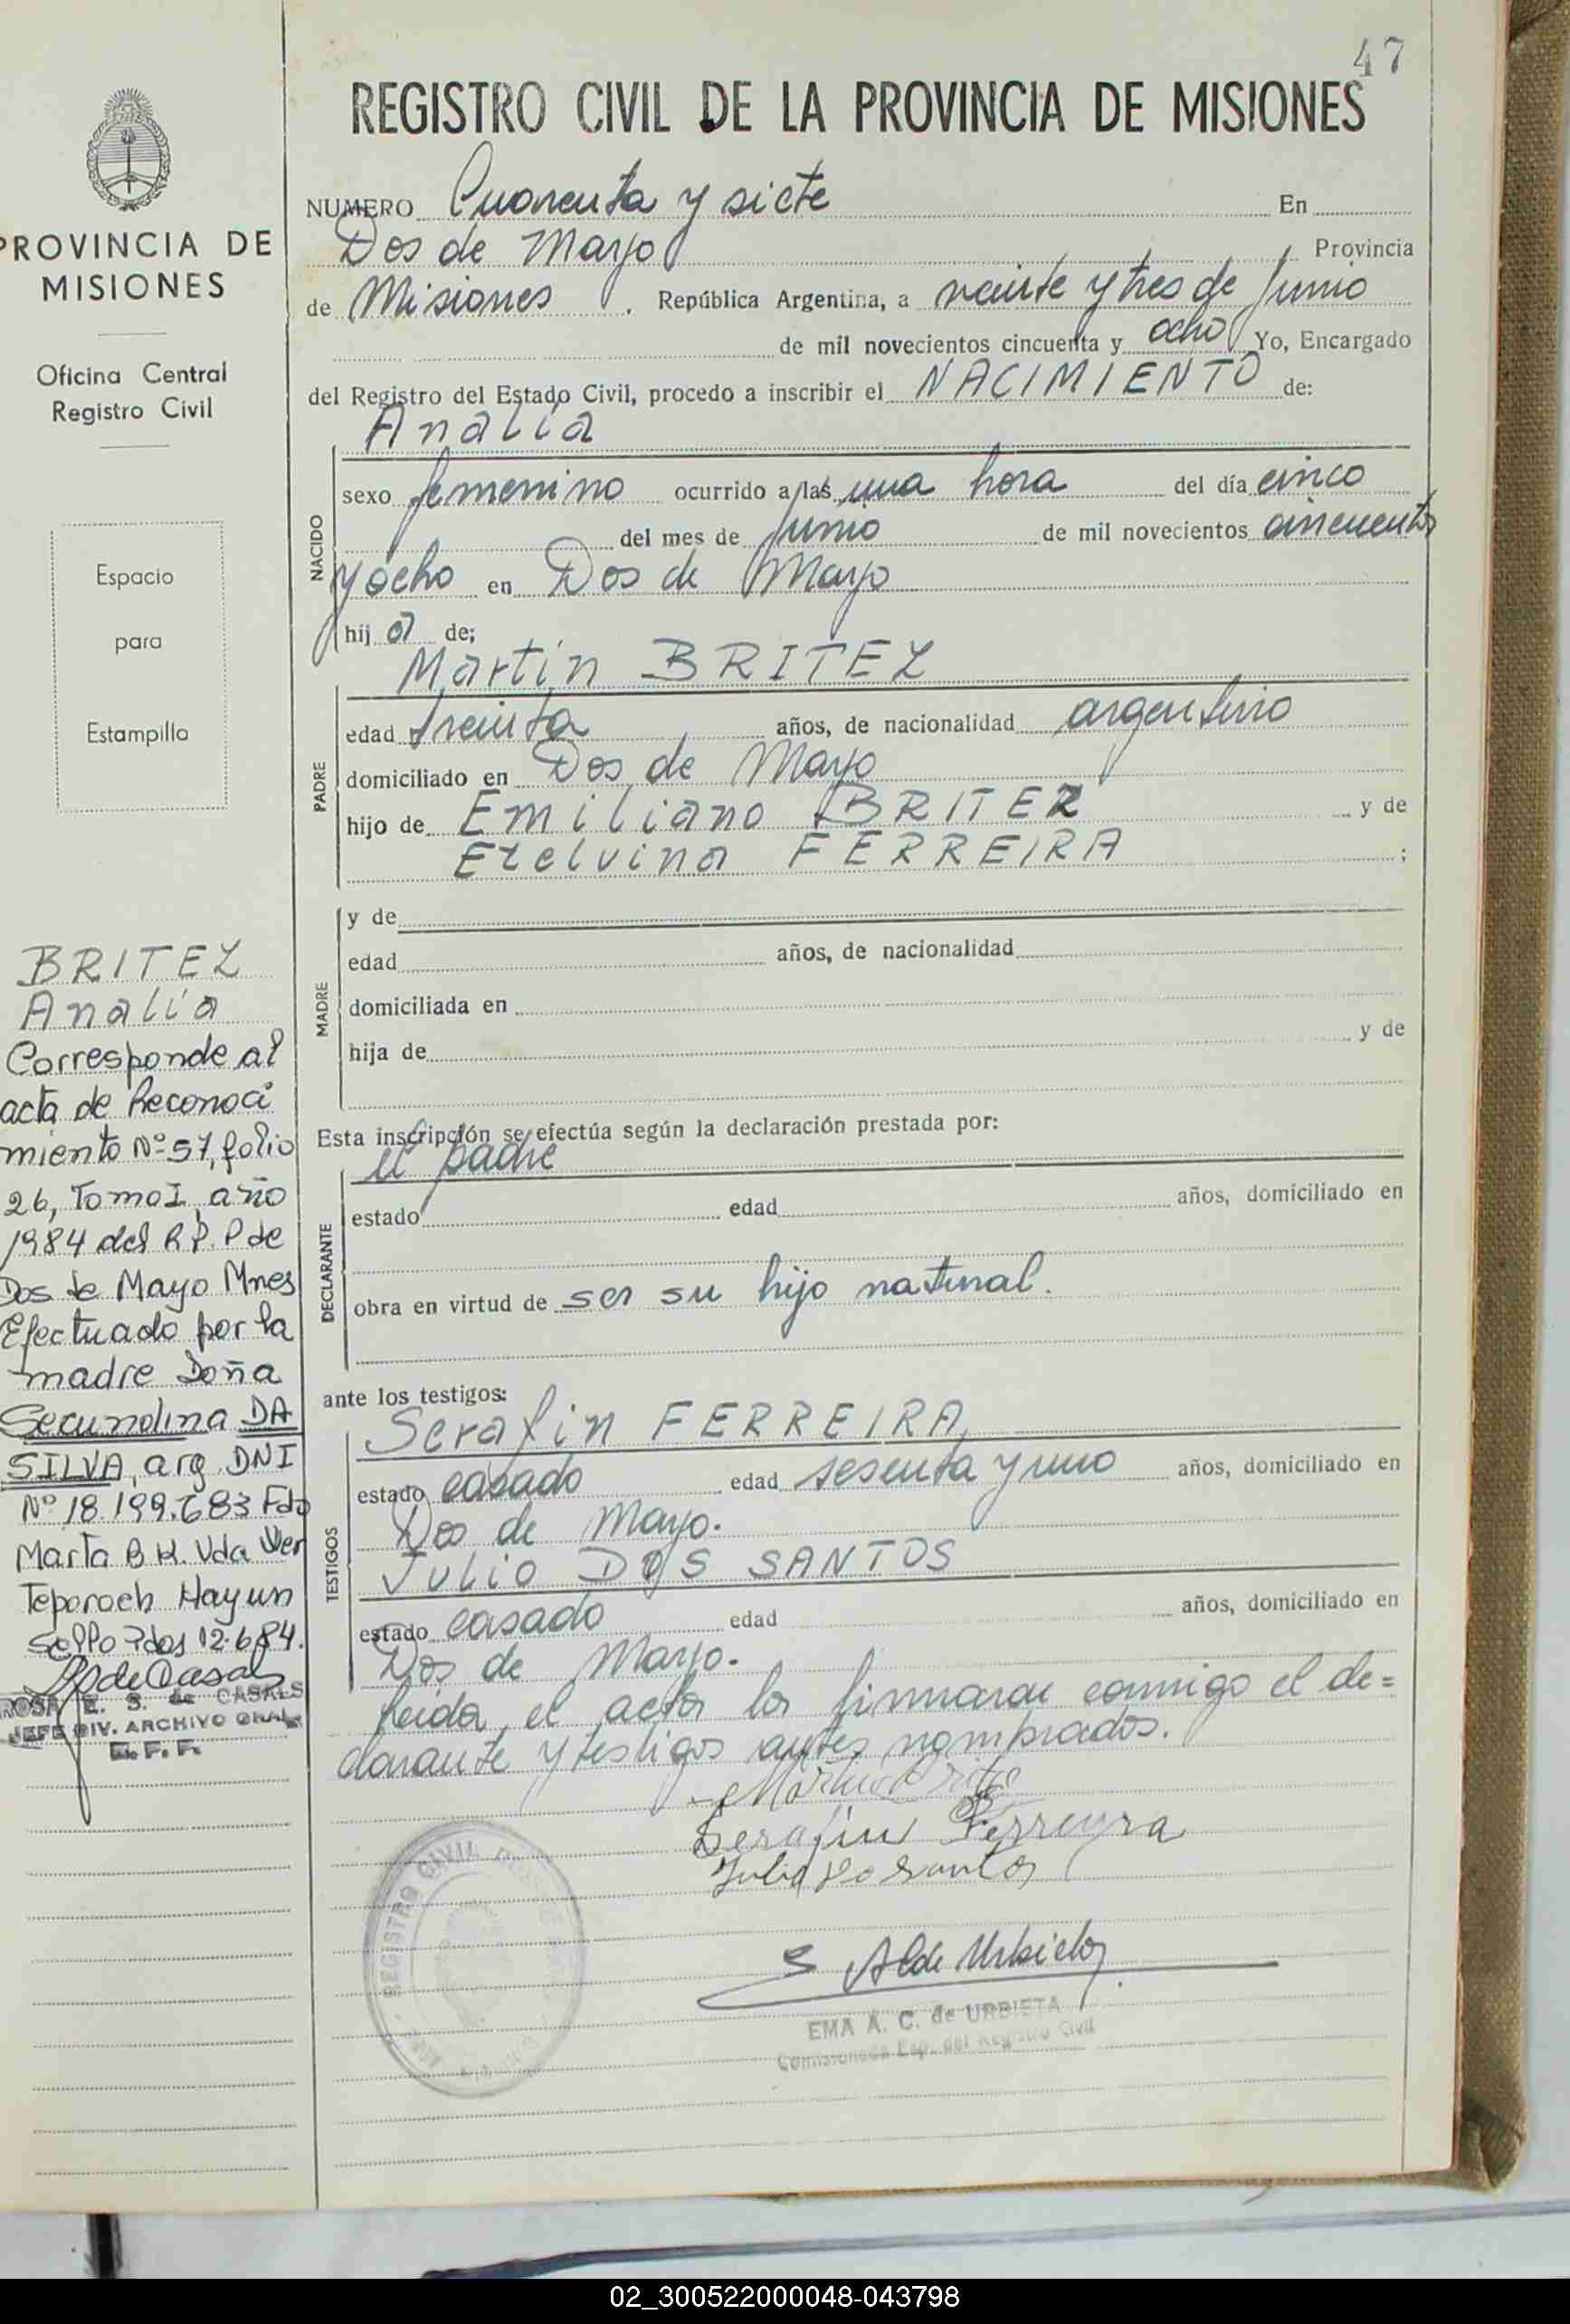 47
REGISTRO CIVIL DE LA PROVINCIA DE MISIONES
NUMERO Cuarenta y siete En
Dos de Mayo Provincia
de Misiones . República Argentina, a veinte y tres de Junio
de mil novecientos cincuenta y ocho Yo, Encargado
del Registro del Estado Civil, procedo a inscribir el NACIMIENTO de:
Analía
NACIDO
sexo femenino ocurrido a las una hora del día cinco
del mes de Junio de mil novecientos cincuenta
y ocho en Dos de Mayo
hij a de;
Martín BRITEZ
PADRE
edad treinta años, de nacionalidad argentino
domiciliado en Dos de Mayo
hijo de Emiliano BRITEZ y de
Etelvina FERREIRA ;
MADRE
y de
edad años, de nacionalidad
domiciliada en
hija de y de
Esta inscripción se efectúa según la declaración prestada por:
el padre
DECLARANTE
estado edad años, domiciliado en
obra en virtud de ser su hijo natural.
ante los testigos:
Serafin FERREIRA,
TESTIGOS
estado casado edad sesenta y uno años, domiciliado en
Dos de Mayo.
Julio DOS SANTOS
estado casado edad años, domiciliado en
Dos de Mayo.
leida el acta la firmaron conmigo el de=
clarante y testigos antes nombrados.
Serafin Ferreyra
EMA A. C. de URBIETA
Comisionada Esp. del Registro Civil
REGISTRO CIVIL
PROVINCIA DE
MISIONES
Oficina Central
Registro Civil
Espacio
para
Estampilla
BRITEZ
Analía
Corresponde al
acta de Reconoci
miento Nº 57, folio
26, Tomo I, año
1984 del R.P. P de
Dos de Mayo Mnes
Efectuado por la
madre Doña
Secundina DA
SILVA, arg. DNI
Nº 18.199.683 Fdo
Marta B H. Vda
Sello Pdos 12-6-84.
ROSA E. S. de CASALS
JEFE DIV. ARCHIVO GRAL.
E. F. F.
02_300522000048-043798